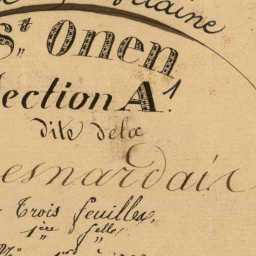 St Onen
Section A1
dite de la
esnardais
Trois feuilles,
1ère felle,